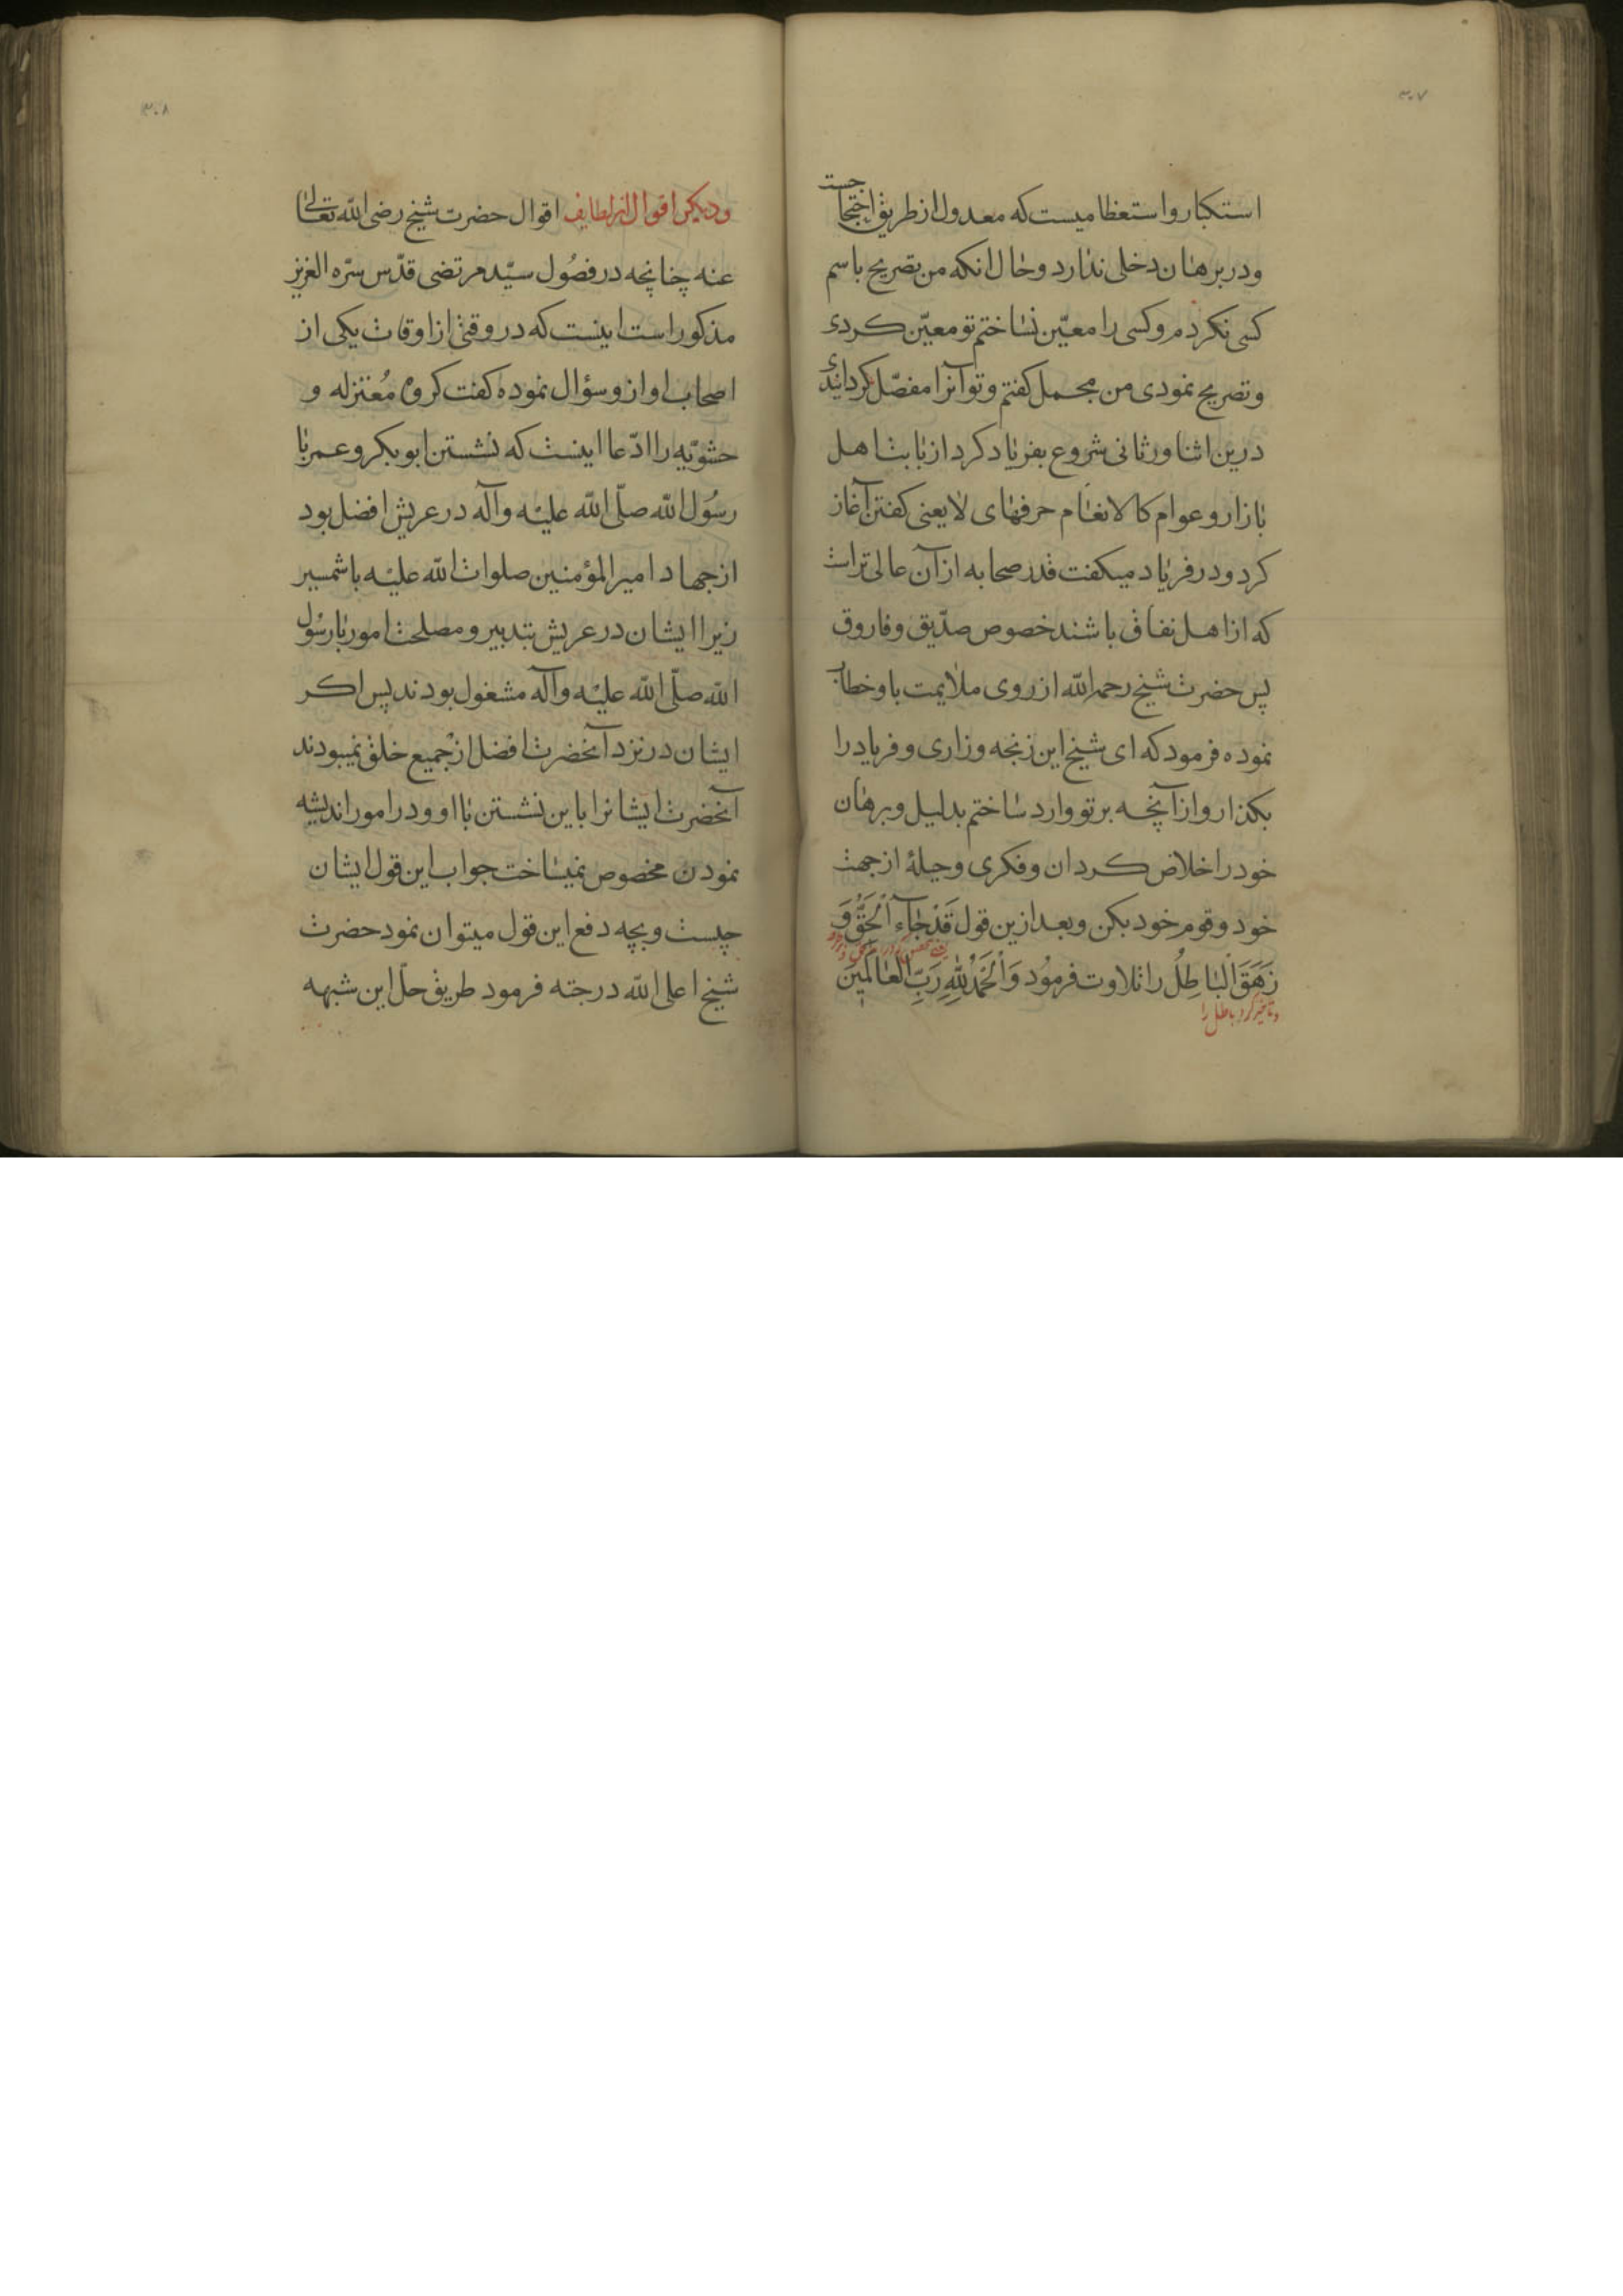 ۳۰۷
استکبار و استعظامیست که معدول از طریق احتجاجست
و در برهان دخلی ندارد و حال انکه من تصریح باسم
کسی نکردم و کسی را معیّن نساختم تو معیّن کردی
و تصریح نمودی من مجمل کفتم و تو آنرا مفصّل کردانیدی
درین اثنا ورثانی شروع بفریاد کرد از بابت اهل
بازار و عوام کالانعَام حرفهای لایعنی کفتن آغاز
کرد و در فریاد میکفت قدر صحابه از آن عالی تراست
که از اهل نفاق باشند خصوص صدّیق و فاروق
پس حضرت شیخ رحمه الله از روی ملایمت باو خطاب
نموده فرمود که ای شیخ این زنجه و زاری و فریاد را
بکذار و از آنچه بر تو وارد ساختم بدلیل و برهان
خود را خلاص کردان و فکری و حیلهٔ از جهت
خود و قوم خود بکن و بعد ازین قول قَدْ جَآءَ اْلحَقُّ وَ
زَهَقَ اْلبَاطِلُ را تلاوت فرمُود وَاْلحَمْدُ لِلّٰهِ رَبِّ الْعَالَمینَ
باطل را
۳۰۸
و دیکر اقوال از لطایف اقوال حضرت شیخ رضی الله تعالی
عنه چنانچه در فصُول سیّد مرتضی قدّس سرّه العزیز
مذکور است اینست که در وقتی از اوقات یکی از
اصحاب او ازو سؤال نموده کفت کروه مُعتزله و
حشویّه را ادّعا اینست که نشستن ابوبکر و عمر با
رسُول الله صلّی الله علیْه وآله در عریش افضل بود
از جهاد امیرالمؤمنین صلوات الله علیْه باشمسیر
زیرا ایشان در عریش بتدبیر و مصلحت امور با رسُول
الله صلّی الله علیْه وآله مشغول بودند پس اکر
ایشان در نزد آنحضرت افضل از جمیع خلق نمیبودند
آنحضرت ایشانرا باین نشستن با او و در امور اندیشه
نمودن مخصوص نمیساخت جواب این قول ایشان
چیست و بچه دفع این قول میتوان نمود حضرت
شیخ اعلی الله درجته فرمود طریق حلّ این شبهه